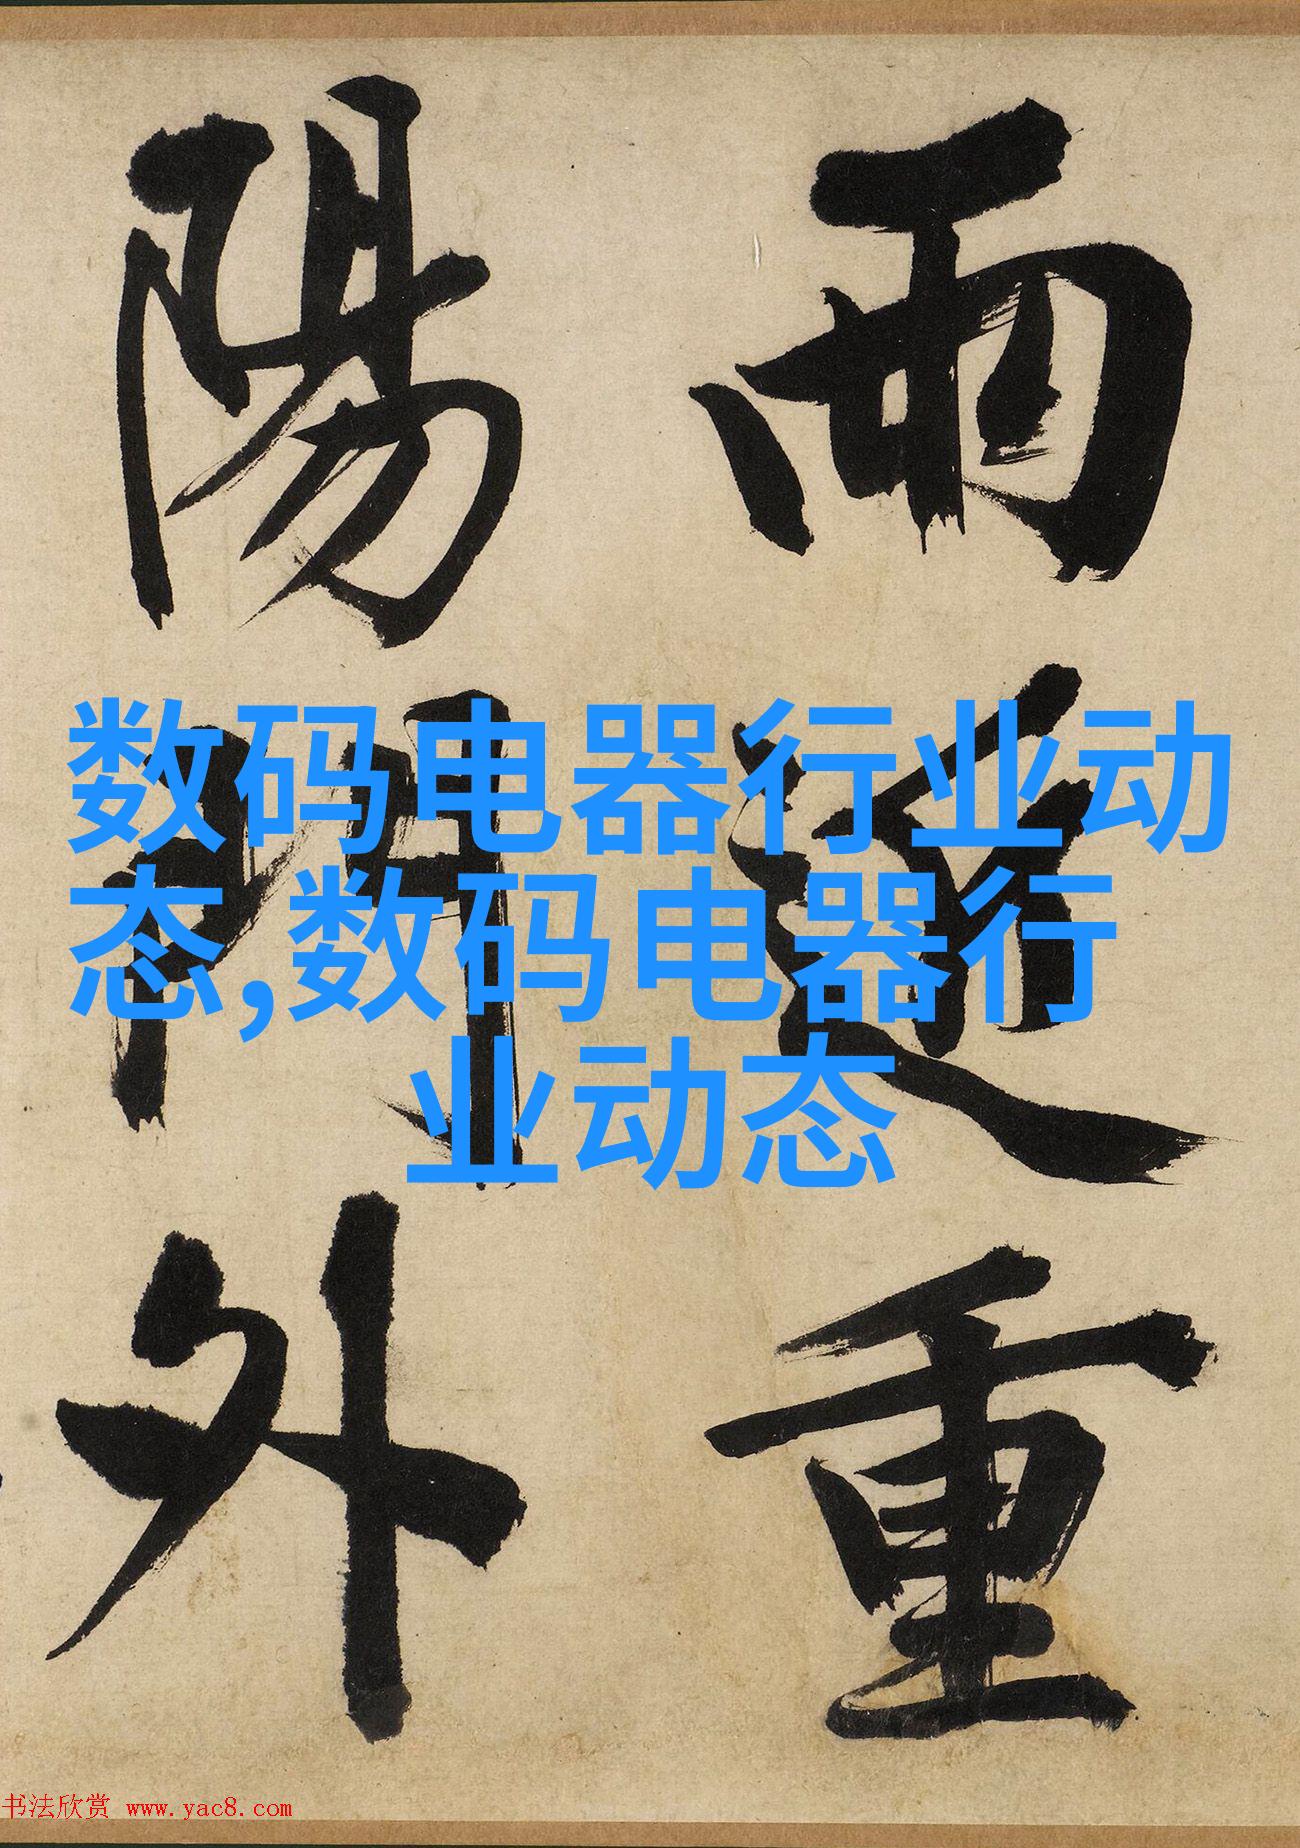 雨近重
陽門外
数码电器行业动
态,数码电器行
业动态
书法欣赏 www.yac8.com